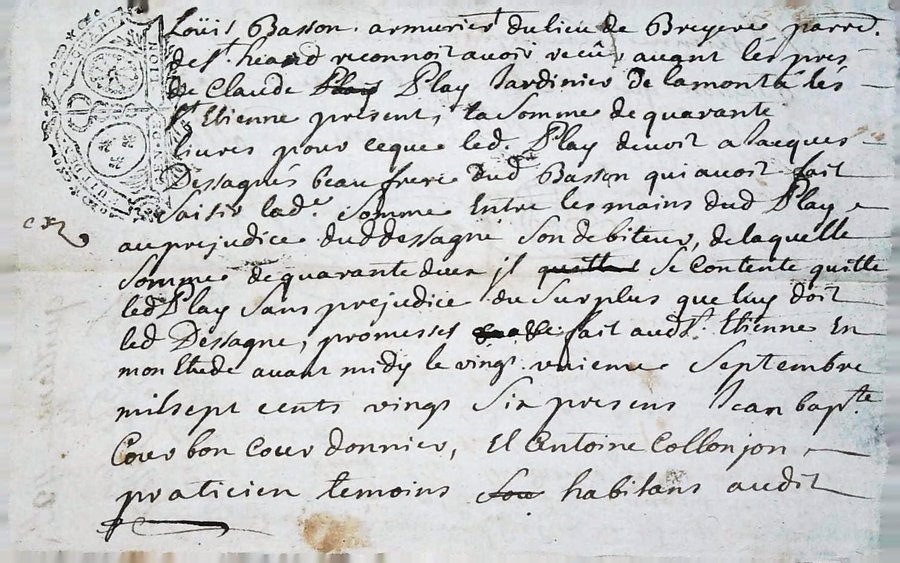 Loüis Basson armurier du lieu de Breyere parre.
de St. heand reconnoit avoir recû avant les pres
de Claude Play Play Jardinier de la monta lés
St Etienne present, la Somme de quarante
livres pour ceque led. Play devoit a Jacques
Dessagnes beau frere dud Basson qui avoit fait
Saisir lade. Somme Entre les mains dud Play
au prejudice dud dessagne Son debiteur, de laquelle
Somme de quarante il Se Contente quitte
led Play Sans prejudice du Surplus que luy doit
led Dessagne, promesses fait aud St. Etienne En
mon Etude avant midy le vingt Septembre
mil sept cents vingt Six presens Jean bapte.
Courbon Cour donnier, Et Antoine Collonjon
praticien temoins habitans audit